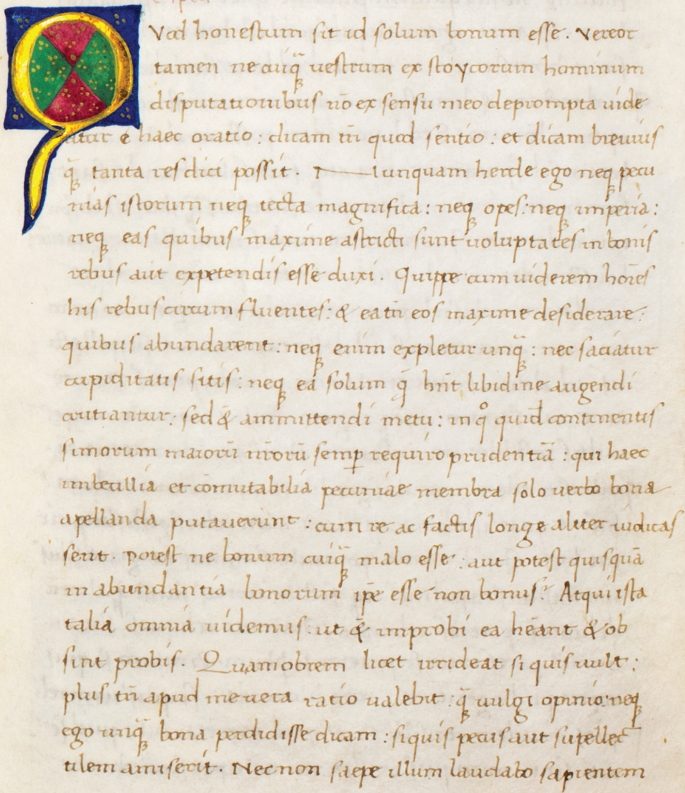 Quod honestum sit id solum bonum esse. Vereor
tamen ne cuiq̃ uestrum ex stoycorum hominum
disputationibus nō ex sensu meo deprompta uide
atur haec oratio: dicam tñ quod sentio: et dicam breuius
q̃ tanta res dici possit. Nunquam hercle ego neq pecu
nias istorum neq tecta magnifica: neq opes: neq imperia:
neq eas quibus maxime astricti sunt uoluptates in bonis
rebus aut expetendis esse duxi. Quippe cum uiderem hoies
his rebus circum fluentes: & ea tñ eos maxime desiderare:
quibus abundarent: neq enim expletur unq̃: nec saciatur
cupiditatis sitis: neq ea solum q̃ hñt libidine augendi
cruciantur: sed & ammittendi metu: in qͦ quid̄ continentis
simorum maiorū nr̄orū semp requiro prudentiā: qui haec
imbecillia et cōmutabilia pecuniae membra solo uerbo bona
apellanda putauerunt: cum re ac factis longe aliter iudicas
sent. Potest ne bonum cuiq̃ malo esse: aut potest quisquā
in abundantia bonorum ipē esse non bonus? Atqui ista
talia omnia uidemus: ut & improbi ea hēant & ob
sint probis. Quamobrem licet irrideat si quis uult:
plus tñ apud me uera ratio ualebit: q̃ uulgi opinio: neq
ego unq̃ bona perdidisse dicam: siquis pecus aut supellec
tilem amiserit. Nec non saepe illum laudabo sapientem